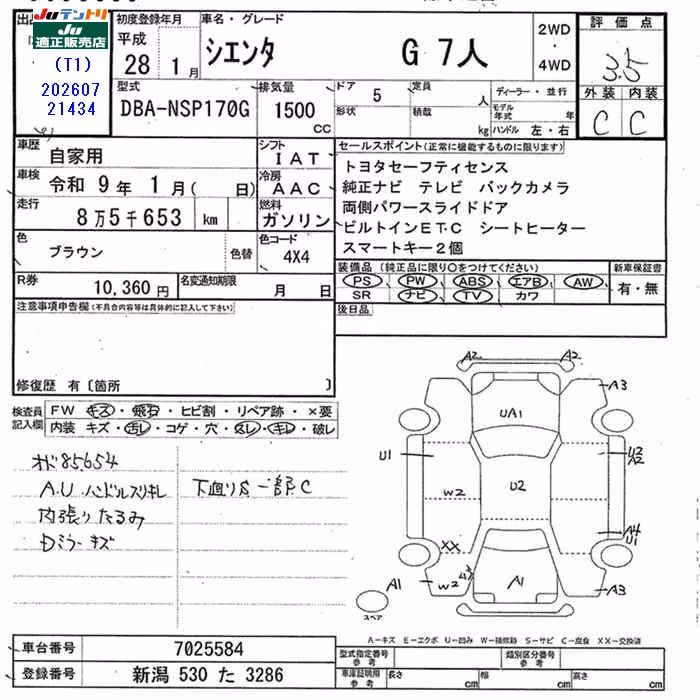 JUテントリ
JU
適正販売店
(T1)
202607
21434
初度登録年月
平成
28 1月
車名・グレード
シエンタ G 7人
2WD
・
4WD
評価点
3.5
外装 内装
C C
型式
DBA-NSP170G
排気量
1500
CC
ドア 5
定員 人
形状
積載 kg
ディーラー・並行
モデル年式 年式
ハンドル 左・右
車歴
自家用
シフト
IAT
車検
令和 9年 1月( 日)
冷房
AAC
走行
8万5千653 km
燃料
ガソリン
色
ブラウン
色替
色コード
4X4
R券
10,360円
名変通知期限
月 日
セールスポイント(正常に機能するものに限ります)
トヨタセーフティセンス
純正ナビ テレビ バックカメラ
両側パワースライドドア
ビルトインETC シートヒーター
スマートキー2個
装備品(純正品に限り〇をつけてください)
PS PW ABS エアB AW
SR ナビ TV カワ
新車保証書
有・無
後日品
注意事項申告欄(不具合内容等は具体的に記入して下さい)
修復歴 有〔箇所 〕
検査員
記入欄
FW キズ・飛石・ヒビ割・リペア跡・×要
内装 キズ・汚レ・コゲ・穴・スレ・キレ・破レ
オド85654
A.U. ハンドルスリキレ
内張りたるみ
Dミラーキズ
下廻りS 一部C
A2 A2
A3
UA1
U1
U2
A2
U2
W2
A4
U1
XX
A1
W2
A1
A3
スペア
A-キズ E-エクボ U-凹み W-補修跡 S-サビ C-腐食 XX-交換済
車台番号 7025584
登録番号 新潟 530 た 3286
型式指定番号
参考
類別区分番号
参考
車庫証明用
参考
長さ cm
幅 cm
高さ cm